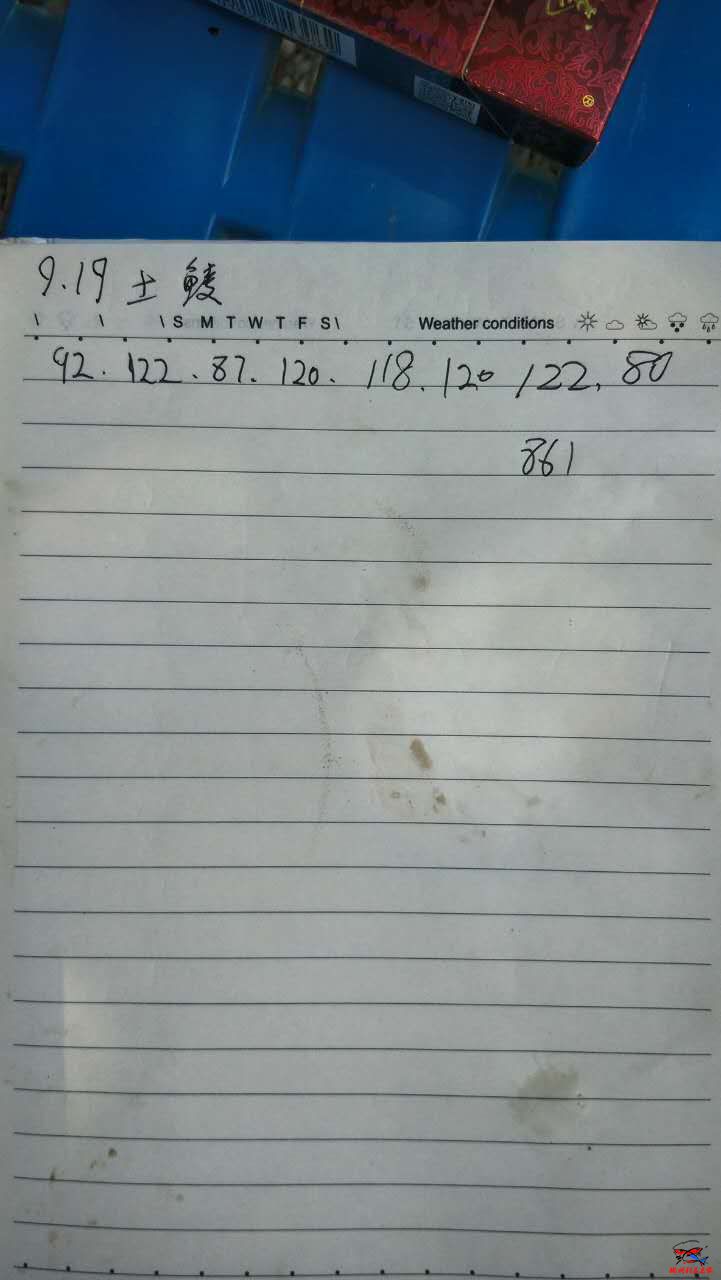 9.19 土 鲮
\ \ \ S M T W T F S \ Weather conditions
92. 122. 87. 120. 118. 120 122. 80
861